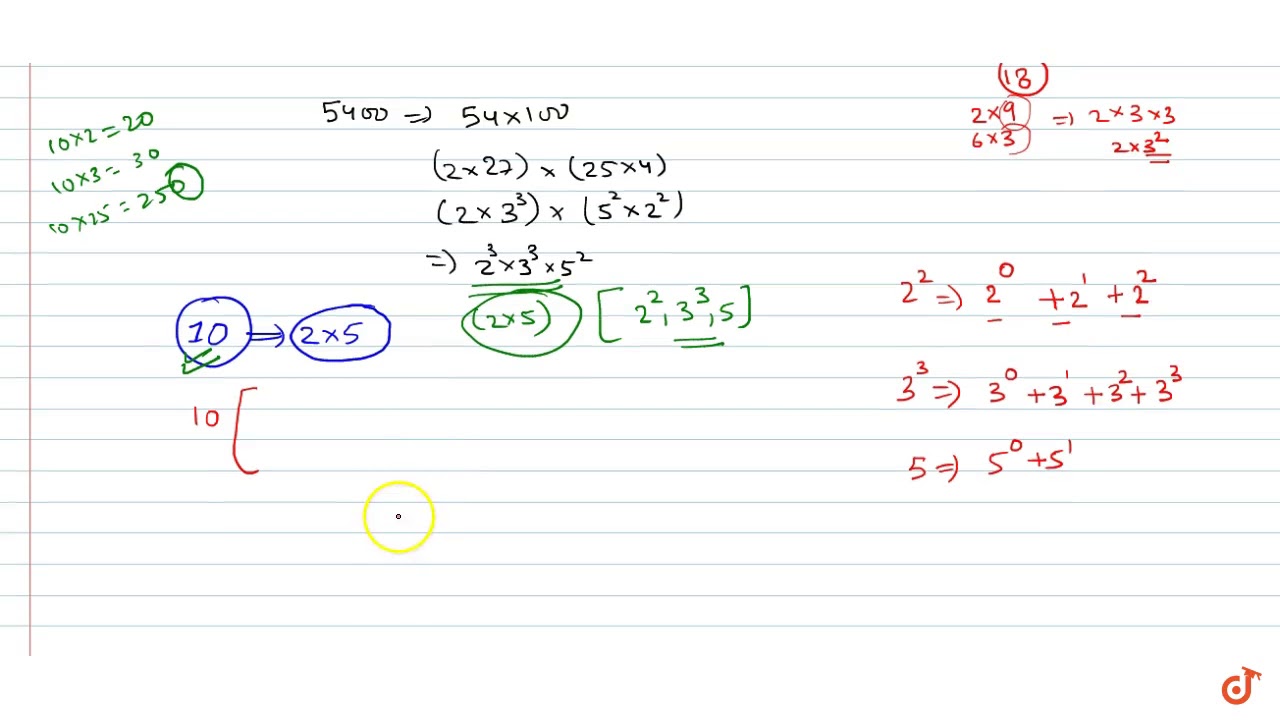 10×2=20
10×3=30
10×25=250
5400 => 54×100
(2×27) × (25×4)
(2×3³) × (5²×2²)
=> 2³×3³×5²
(2×5) [2²,3³,5]
10 => 2×5
10 [
18
2×9 => 2×3×3
6×3 2×3²
2² => 2⁰ +2¹ +2²
3³ => 3⁰ +3¹ +3² +3³
5 => 5⁰ +5¹